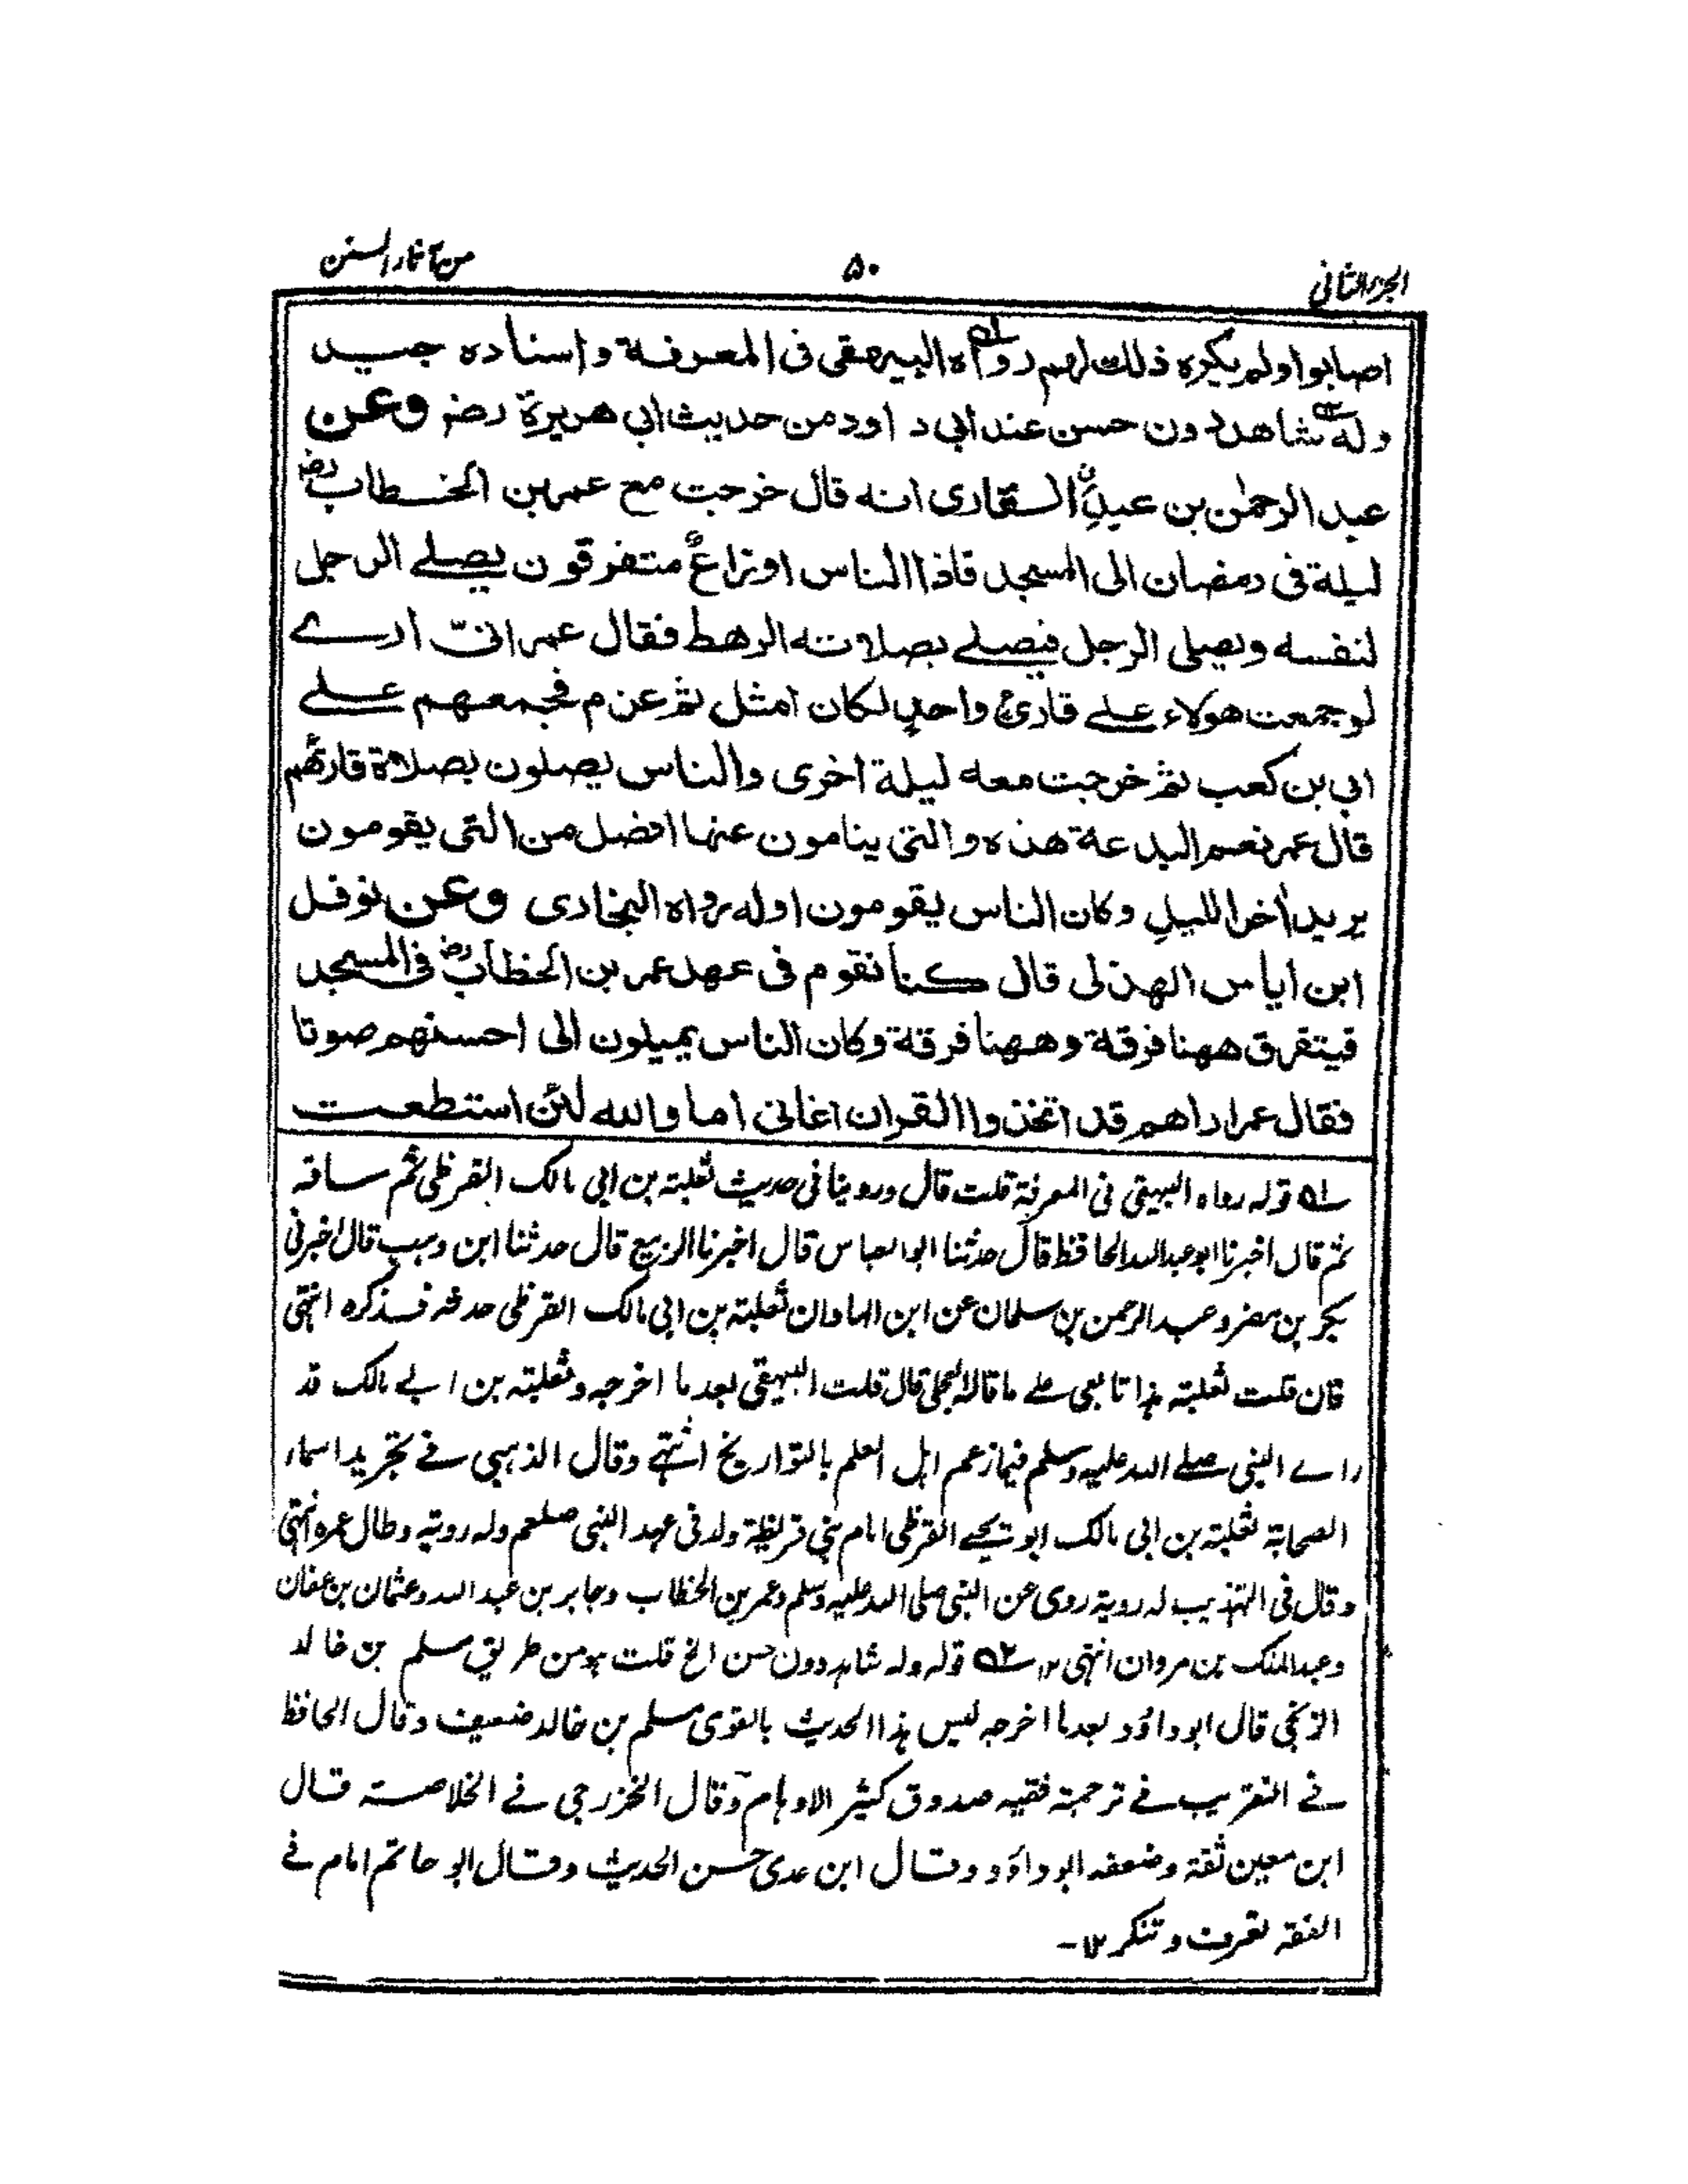 الجزء الثانی
۵۰
من آثار السنن
اصابوا ولم یکره ذلك لهم رواه البیهقی فی المعرفة واسناده جید
وله شاهد دون حسن عند ابی داود من حدیث ابی هریرة رضـ وعن
عبد الرحمٰن بن عبدٍ القاری انه قال خرجت مع عمر بن الخطاب رضـ
لیلة فی رمضان الی المسجد فاذا الناس اوزاعٌ متفرقون یصلے الرجل
لنفسه ویصلی الرجل فیصلے بصلاته الرهط فقال عمر انیّ ارے
لو جمعت هولاء علے قاریٔ واحدٍ لکان امثل ثم عزم فجمعهم علے
ابی بن کعب ثم خرجت معه لیلة اخری والناس یصلون بصلاة قارئهم
قال عمر نعم البدعة هذه والتی ینامون عنها افضل من التی یقومون
یرید اٰخر اللیلِ وکان الناس یقومون اوله رواه البخاری وعن نوفل
ابن ایاس الهذلی قال کنا نقوم فی عهد عمر بن الخطاب رضـ فی المسجد
فیتفرق ههنا فرقة وههنا فرقة وکان الناس یمیلون الی احسنهم صوتا
فقال عمر اراهم قد اتخذوا القران اغانی اما والله لئن استطعت
ــ۱ه قوله رواه البیهقی فی المعرفة قلت قال وروینا فی حدیث ثعلبة بن ابی مالک القرظی ثم ساقه
ثم قال اخبرنا ابو عبد الله الحافظ قال حدثنا ابو العباس قال اخبرنا الربیع قال حدثنا ابن وهب قال اخبرنی
بکر بن مضر وعبد الرحمن بن سلمان عن ابن الهاد ان ثعلبة بن ابی مالک القرظی حدثه فذکره انتهی
فان قلت ثعلبة هذا تابعی علے ما قاله العجلی قال قلت البیهقی بعد ما اخرجه وثعلبة بن ابے مالک قد
راے النبی صلے الله علیه وسلم فیما زعم اهل العلم بالتواریخ انتهے وقال الذهبی فے تجرید اسماء
الصحابة ثعلبة بن ابی مالک ابو یحیے القرظی امام بنی قریظة ولد فی عهد النبی صلعم وله رویة وطال عمره انتهی
وقال فی التهذیب له رویة روی عن النبی صلی الله علیه وسلم وعمر بن الخطاب وجابر بن عبد الله وعثمان بن عفان
وعبد الملک بن مروان انتهی ۱۲ ــ۲ه قوله وله شاهد دون حسن الخ قلت هو من طریق مسلم بن خالد
الزنجی قال ابو داؤد بعد ما اخرجه لیس هذا الحدیث بالقوی مسلم بن خالد ضعیف وقال الحافظ
فے التقریب فے ترجمة فقیه صدوق کثیر الاوهام وقال الخزرجی فے الخلاصة قال
ابن معین ثقة وضعفه ابو داؤد وقال ابن عدی حسن الحدیث وقال ابو حاتم امام فے
الفقه تعرف وتنکر ۱۲-